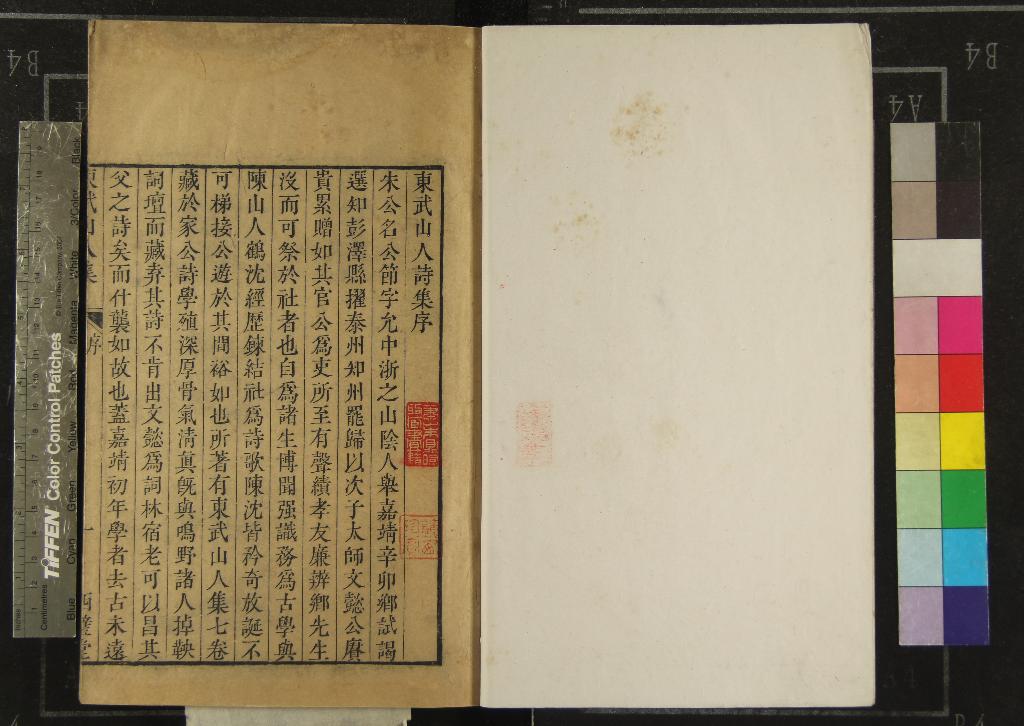 東武山人詩集序
朱公名公節字允中浙之山陰人舉嘉靖辛卯鄉試謁
選知彭澤縣擢泰州知州罷歸以次子太師文懿公賡
貴累贈如其官公爲吏所至有聲績孝友廉辨鄉先生
沒而可祭於社者也自爲諸生博聞强識務爲古學與
陳山人鶴沈經歷鍊結社爲詩歌陳沈皆矜奇放誕不
可梯接公遊於其間裕如也所著有東武山人集七卷
藏於家公詩學殖深厚骨氣清眞旣與鳴野諸人掉鞅
詞壇而藏弆其詩不肯出文懿爲詞林宿老可以昌其
父之詩矣而什襲如故也蓋嘉靖初年學者去古未遠
東武山人集
序
一
B4
A4
B4
A4
TIFFEN Color Control Patches
© The Tiffen Company, 2007
Inches
Centimetres
Blue
Cyan
Green
Yellow
Red
Magenta
White
3/Color
Black